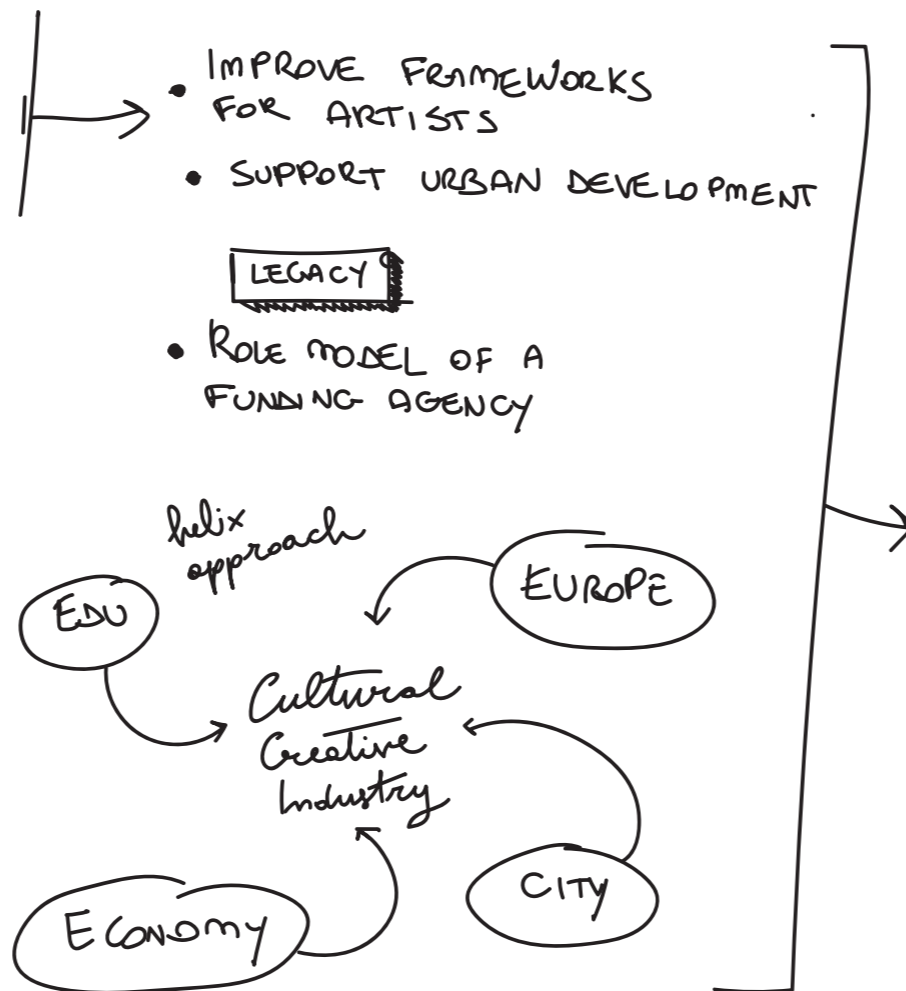 • IMPROVE FRAMEWORKS
FOR ARTISTS
• SUPPORT URBAN DEVELOPMENT
LEGACY
• ROLE MODEL OF A
FUNDING AGENCY
helix
approach
EDU
EUROPE
Cultural
Creative
Industry
CITY
ECONOMY